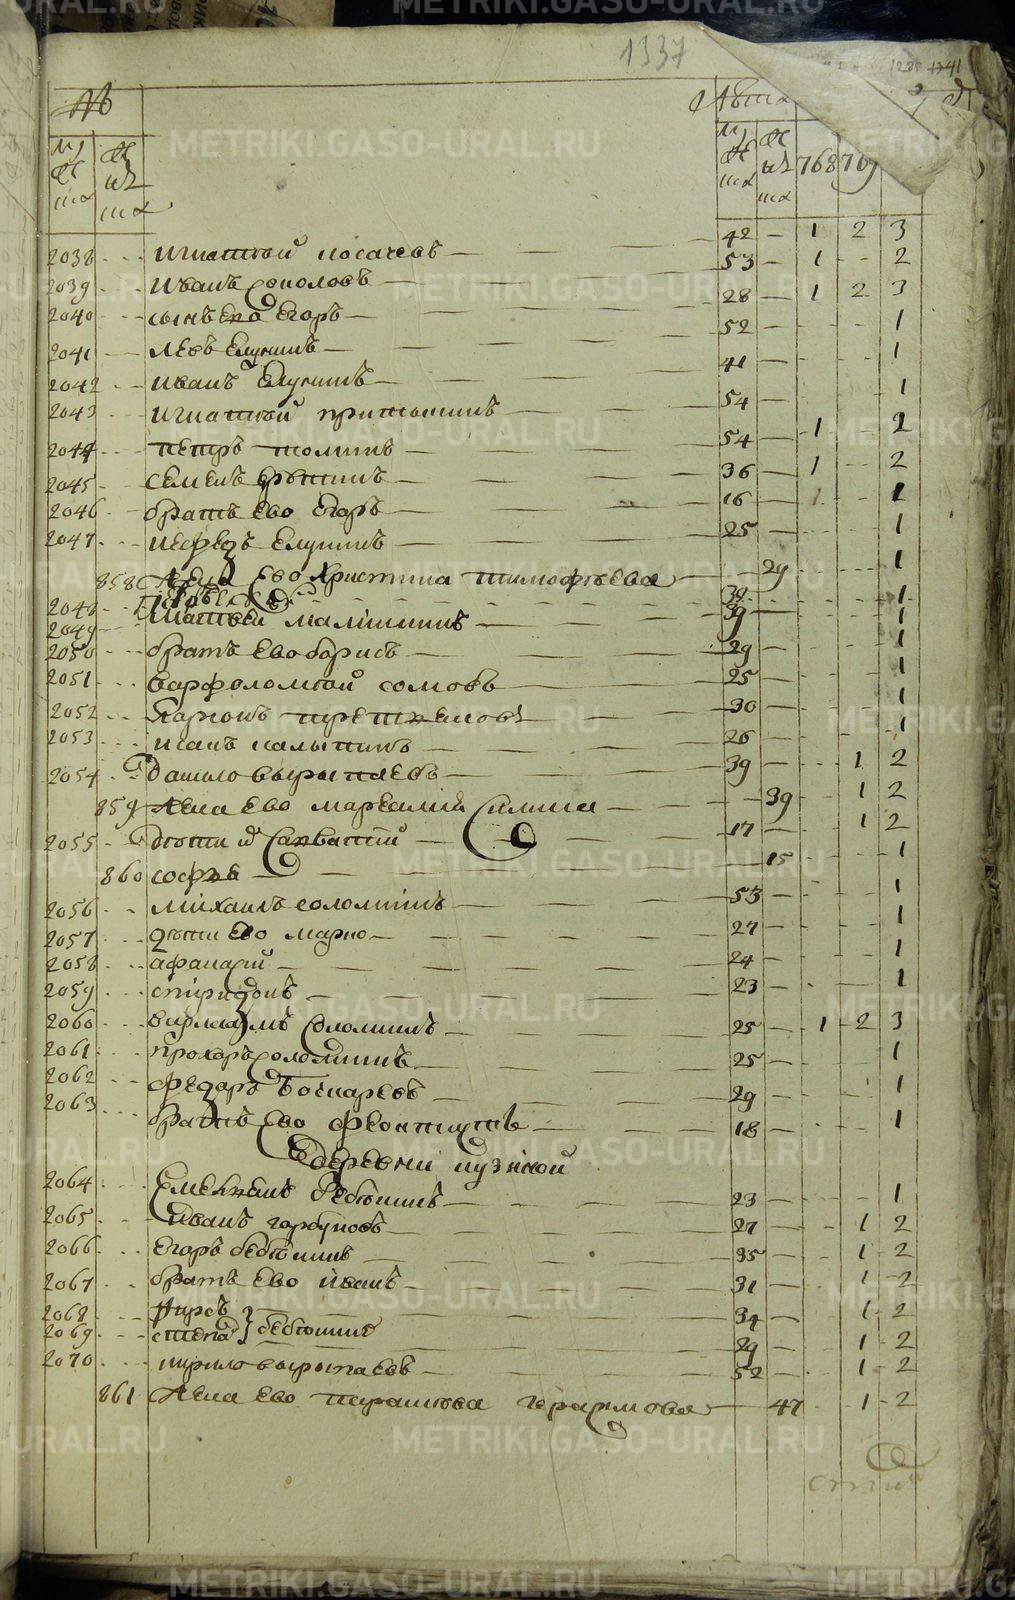 1337
1285 1241
№ Лѣта
муж жен муж жен 768 769
2038 игнатей носачевъ 42 1 2 3
2039 иванъ соколовъ 53 1 2
2040 сынъ ево егоръ 28 1 2 3
2041 левъ елунинъ 52 1
2042 иванъ елунинъ 41 1
2043 игнатей 54 1
2044 петръ толминъ 54 1 2
2045 семенъ 36 1 2
2046 братъ ево егоръ 16 1
2047 нефедъ елунинъ 25 1
858 жена ево христина тимофѣева 29 1
2048 39 1
2049 матвей малышинъ 39 1
2050 братъ ево борисъ 29 1
2051 варфоломей сомовъ 25 1
2052 ларионъ третьяковъ 30 1
2053 иванъ калытинъ 26 1
2054 данило вырыпаевъ 39 1 2
859 жена ево маремия силина 39 1 2
2055 дѣти их савватий 17 1 2
860 софья 15 1
2056 михаилъ соломинъ 53 1
2057 дѣти ево марко 27 1
2058 афанасий 24 1
2059 спиридонъ 23 1
2060 варлаамъ соломинъ 25 1 2 3
2061 прохоръ соломинъ 25 1
2062 федоръ бочкаревъ 29 1
2063 братъ ево феоктистъ 18 1
деревни
2064 емельянъ бебенинъ 23 1
2065 иванъ горбуновъ 27 1 2
2066 егоръ бебенинъ 35 1 2
2067 братъ ево иванъ 31 1 2
2068 киръ 34 1 2
2069 степанъ } бебенины 29 1 2
2070 кирило вырыпаевъ 52 1 2
861 жена ево парасковья герасимова 47 1 2
METRIKI.GASO-URAL.RU